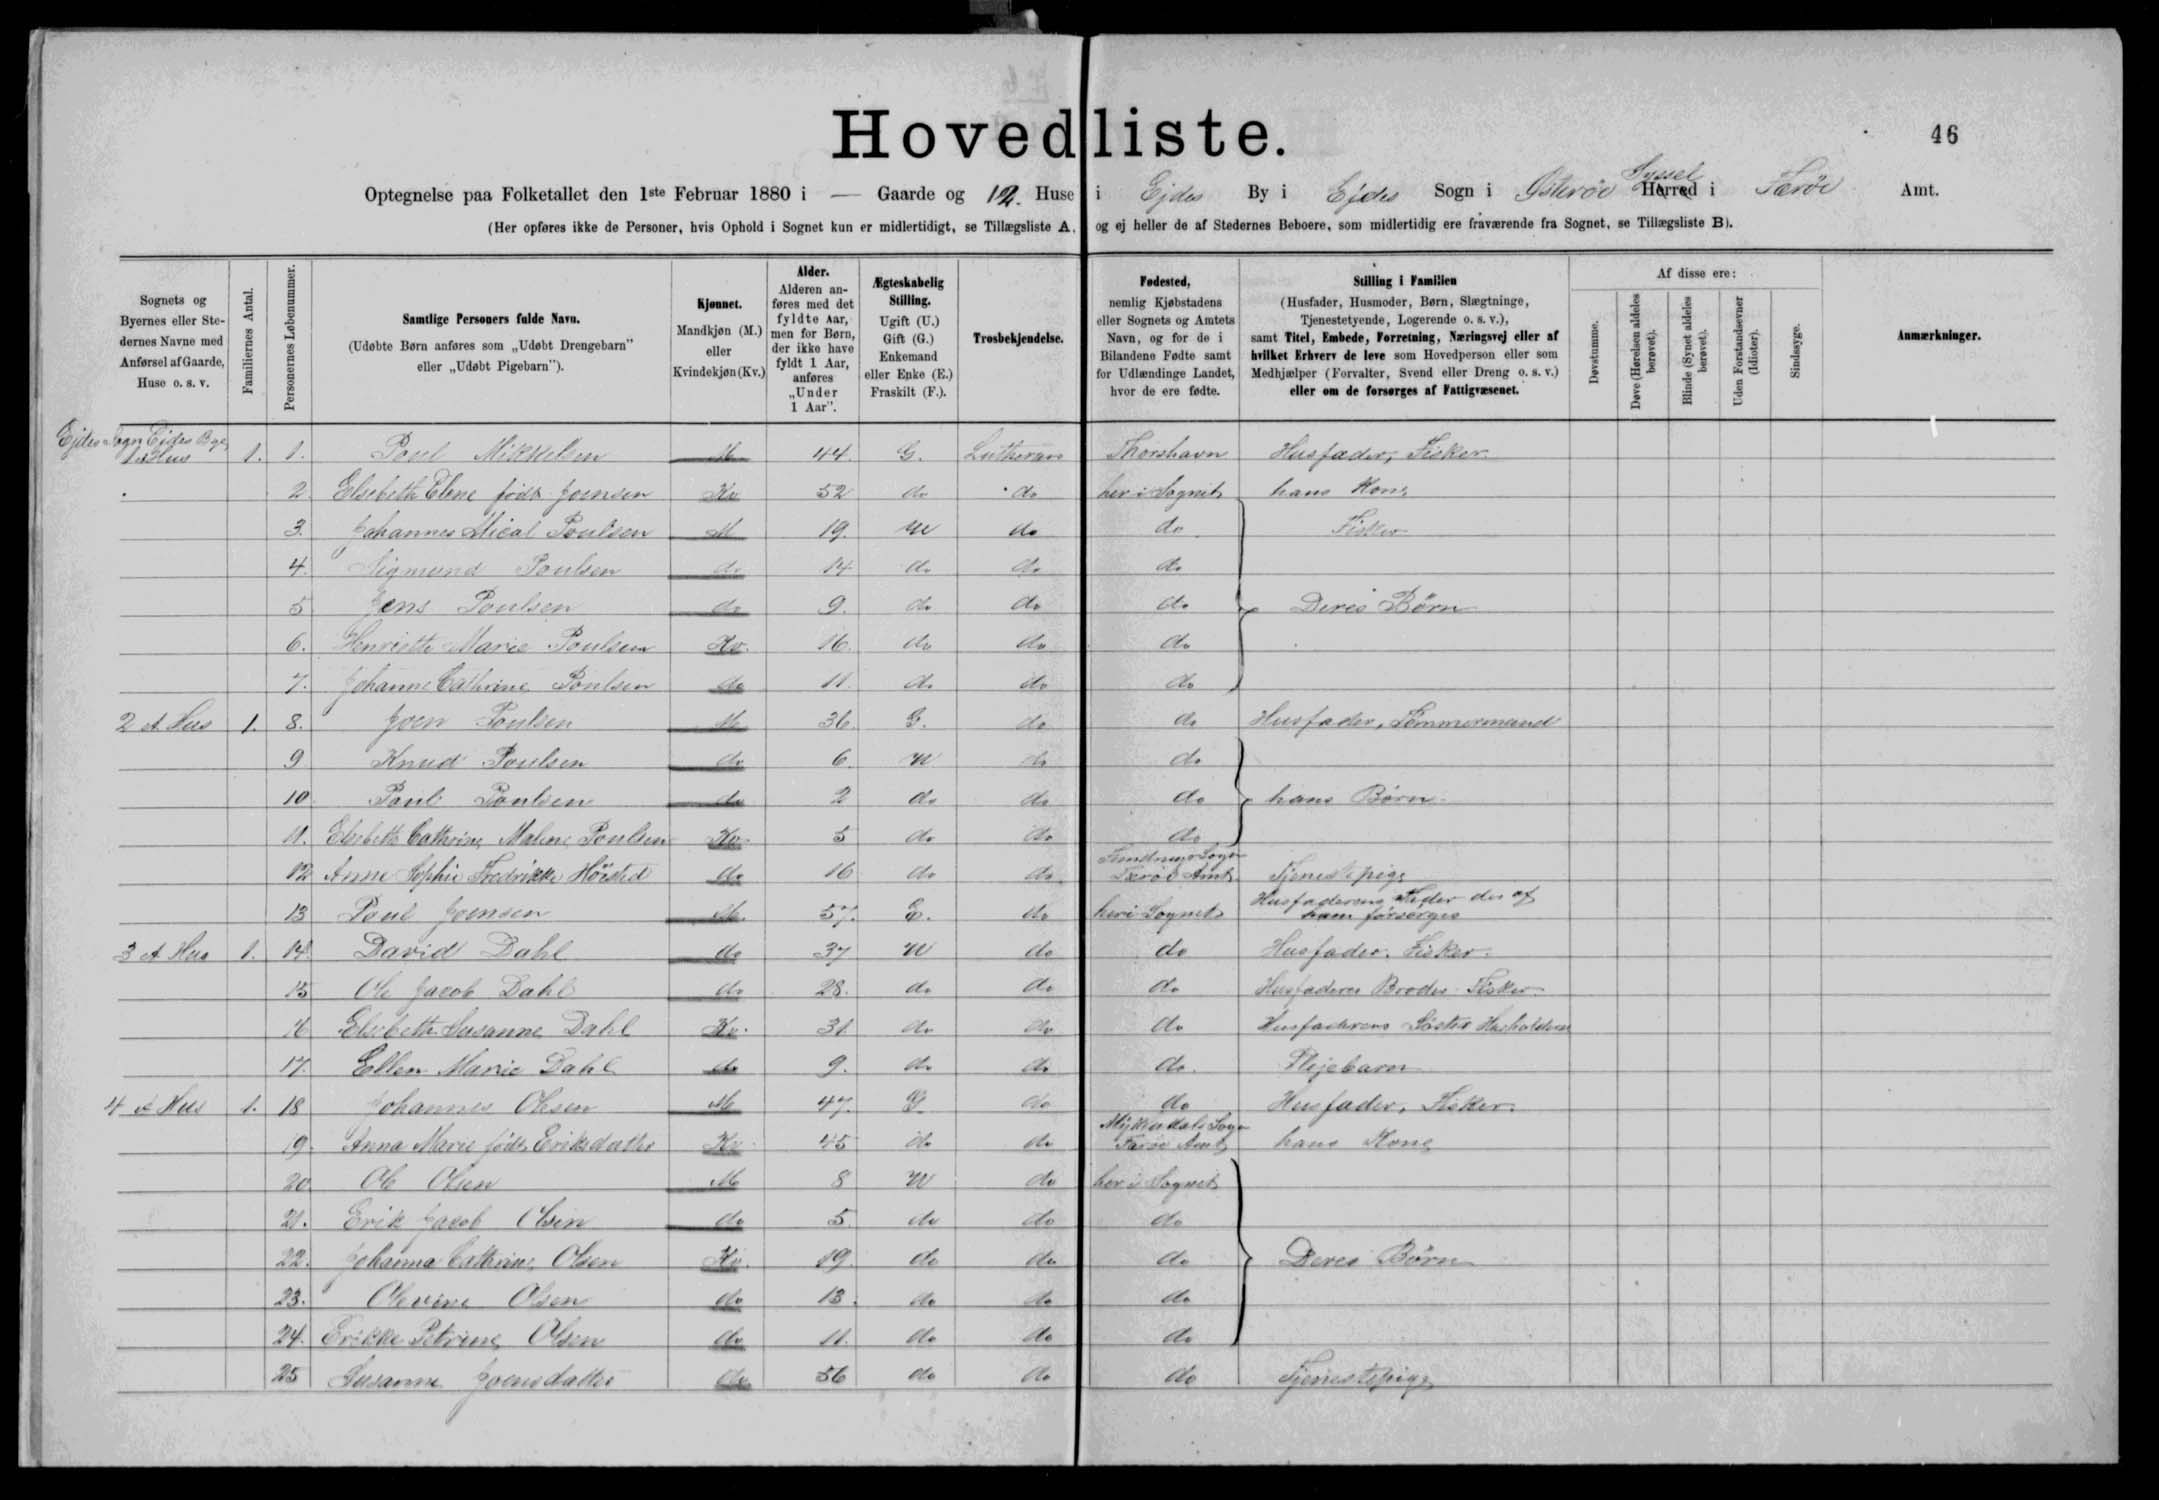 46
Hovedliste.
Optegnelse paa Folketallet den 1ste Februar 1880 i — Gaarde og 12. Huse i Ejdes By i Ejdes Sogn i Østerøe Syssel Herred i Færöe Amt.
(Her opføres ikke de Personer, hvis Ophold i Sognet kun er midlertidigt, se Tillægsliste A, og ej heller de af Stedernes Beboere, som midlertidig ere fraværende fra Sognet, se Tillægsliste B).
Sognets og Byernes eller Stedernes Navne med Anførsel af Gaarde, Huse o. s. v.
Familiernes Antal.
Personernes Løbenummer.
Samtlige Personers fulde Navn.
(Udøbte Børn anføres som „Udøbt Drengebarn" eller „Udøbt Pigebarn").
Kjønnet.
Mandkjøn (M.) eller Kvindekjøn (Kv.)
Alder.
Alderen anføres med det fyldte Aar, men for Børn, der ikke have fyldt 1 Aar, anføres „Under 1 Aar".
Ægteskabelig Stilling.
Ugift (U.) Gift (G.) Enkemand eller Enke (E.) Fraskilt (F.).
Trosbekjendelse.
Fødested,
nemlig Kjøbstadens eller Sognets og Amtets Navn, og for de i Bilandene Fødte samt for Udlændinge Landet, hvor de ere fødte.
Stilling i Familien
(Husfader, Husmoder, Børn, Slægtninge, Tjenestetyende, Logerende o. s. v.), samt Titel, Embede, Forretning, Næringsvej eller af hvilket Erhverv de leve som Hovedperson eller som Medhjælper (Forvalter, Svend eller Dreng o. s. v.) eller om de forsørges af Fattigvæsenet.
Af disse ere:
Døvstumme.
Døve (Hørelsen aldeles berøvet).
Blinde (Synet aldeles berøvet).
Uden Forstandsevner (Idioter).
Sindssyge.
Anmærkninger.
Ejdes Sogn Ejdes Bye
1 A Hus 1. 1. Poul Mikkelsen M 44. G. Lutheraner Thorshavn Husfader, Fisker.
2 Elsebeth Elene født Joensen Kv 52 do do her i Sognet hans Kone
3. Johannes Mical Poulsen M 19. U do do Fisker
4. Sigmund Poulsen do 14 do do do
5 Jens Poulsen do 9. do do do Deres Börn
6. Henriette Marie Poulsen Kv. 16. do do do
7. Johanne Cathrine Poulsen do 11. do do do
2 A Hus 1. 8. Joen Poulsen M 36. G. do do Husfader, Tömmermand
9 Knud Poulsen do 6. U do do
10 Poul Poulsen do 2 do do do hans Börn.
11. Elsebeth Cathrine Malene Poulsen Kv 5 do do do
12 Anne Sophie Fredrikke Hörsted do 16 do do Sogn Færöe Amt Tjenestepige
13 Poul Joensen M. 57. G. do her i Sognet Husfaderens Fader der af ham forsørges
3 A Hus 1. 14. David Dahl do 37 U do do Husfader. Fisker.
15 Ole Jacob Dahl do 28. do do do Husfaderens Broder Fisker
16 Elsebeth Susanne Dahl Kv. 31 do do do Husfaderens Söster
17. Ellen Marie Dahl do 9. do do do. Plejebarn
4 A Hus 1. 18 Johannes Olsen M 47. G. do do Husfader, Fisker.
19. Anna Marie født Eriksdatter Kv 45 do do Sogn Færöe Amt hans Kone
20 Ole Olsen M 8 U do her i Sognet
21. Erik Jacob Olsen do 5. do do do
22. Johanna Cathrine Olsen Kv. 19. do do do Deres Börn
23. Olevine Olsen do 13. do do do
24. Erikke Petrine Olsen do 11. do do do
25 Susanne Joensdatter do 56 do do do Tjenestepige